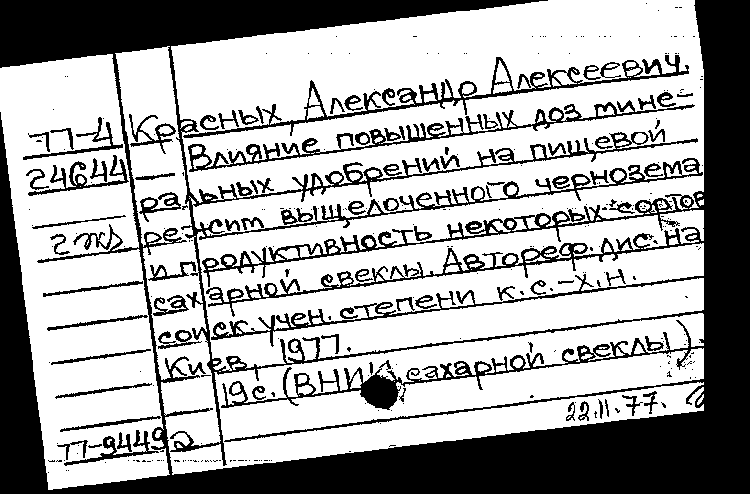 77-4 Красных, Александр Алексеевич.
24644 Влияние повышенных доз мине-
ральных удобрений на пищевой
режим выщелоченного чернозема
и продуктивность некоторых сортов
сахарной свеклы. Автореф. дис. на
соиск. учен. степени к.с.-х.н.
Киев, 1977.
19с. (ВНИИ сахарной свеклы).
22.11.77.
77-9449